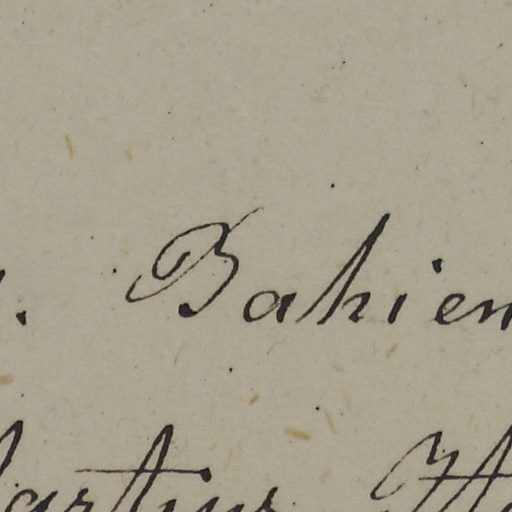 . Bahien
artius. H